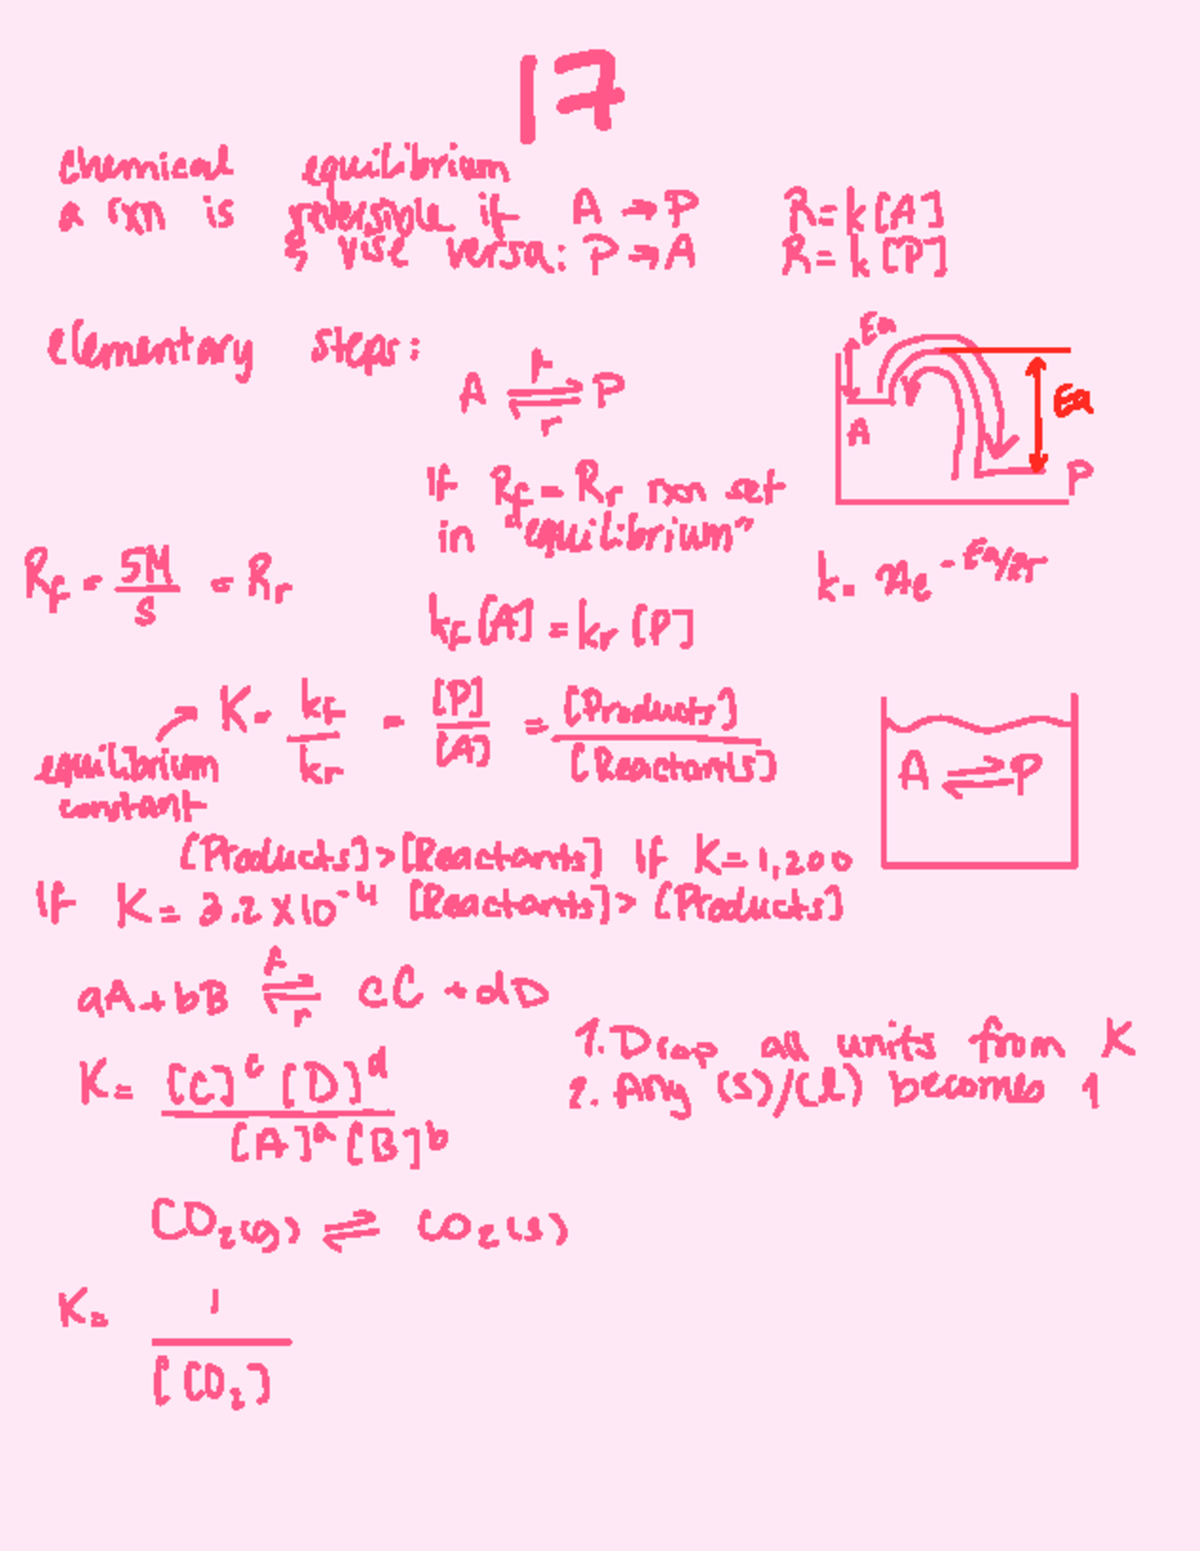 17
chemical equilibrium
a rxn is reversible if A → P R = k[A]
& vise versa: P → A R = k[P]
elementary steps:
f
A ⇌ P
r
Ea
A
Ea
P
If Rf = Rr rxn set
in "equilibrium"
Rf = 5M/s = Rr
kf[A] = kr[P]
K = kf/kr = [P]/[A] = [Products]/[Reactants]
equilibrium
constant
A ⇌ P
[Products] > [Reactants] if K = 1,200
If K = 3.2 x 10⁻⁴ [Reactants] > [Products]
f
aA + bB ⇌ cC + dD
r
1. Drop all units from K
2. Any (s)/(l) becomes 1
K = [C]ᶜ [D]ᵈ / [A]ᵃ [B]ᵇ
CO₂(g) ⇌ CO₂(s)
K = 1 / [CO₂]